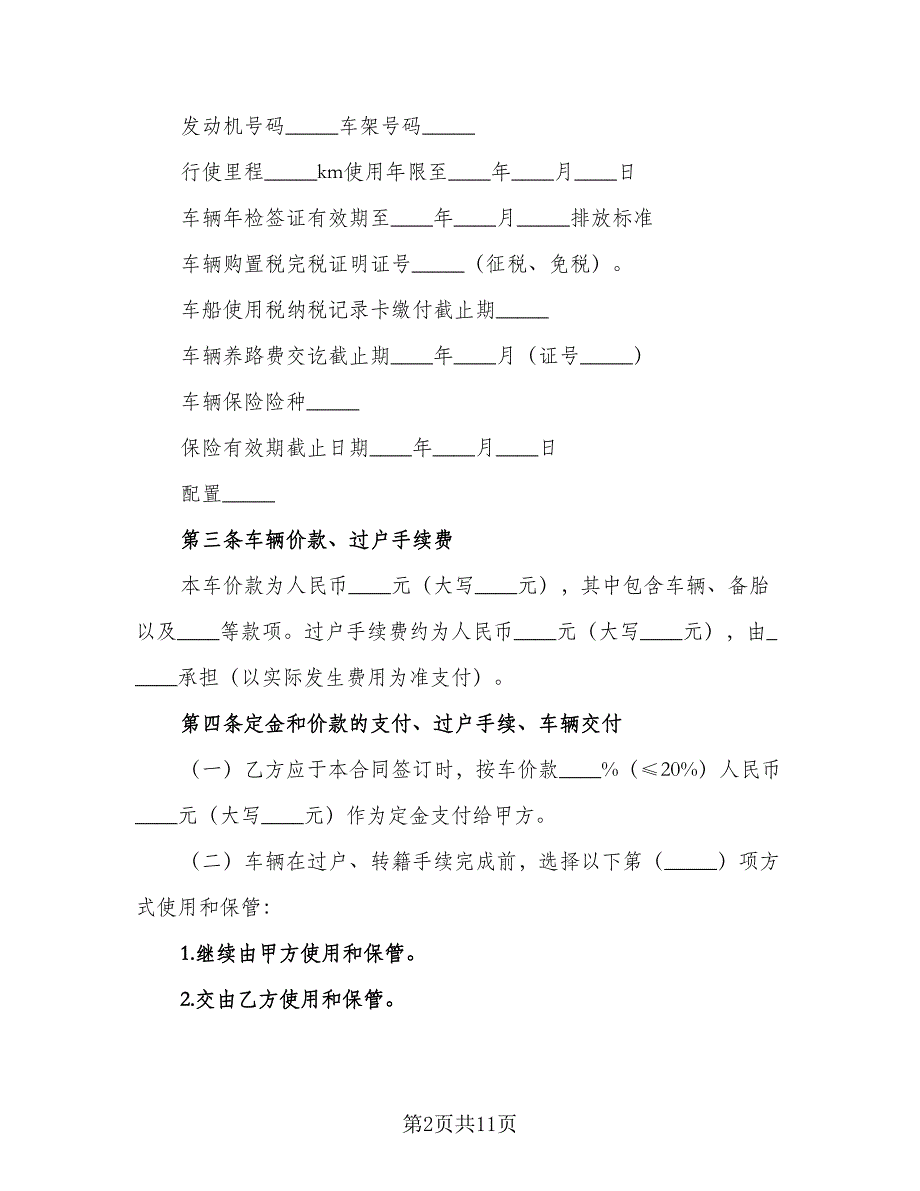 发动机号码_____车架号码_____
行使里程_____km使用年限至____年____月____日
车辆年检签证有效期至____年____月_____排放标准
车辆购置税完税证明证号_____（征税、免税）。
车船使用税纳税记录卡缴付截止期_____
车辆养路费交讫截止期____年____月（证号_____）
车辆保险险种_____
保险有效期截止日期____年____月____日
配置_____
第三条车辆价款、过户手续费
本车价款为人民币____元（大写____元），其中包含车辆、备胎
以及____等款项。过户手续费约为人民币____元（大写____元），由_
____承担（以实际发生费用为准支付）。
第四条定金和价款的支付、过户手续、车辆交付
（一）乙方应于本合同签订时，按车价款____%（≤20%）人民币
____元（大写____元）作为定金支付给甲方。
（二）车辆在过户、转籍手续完成前，选择以下第（_____）项方
式使用和保管：
1.继续由甲方使用和保管。
2.交由乙方使用和保管。
第2页共11页